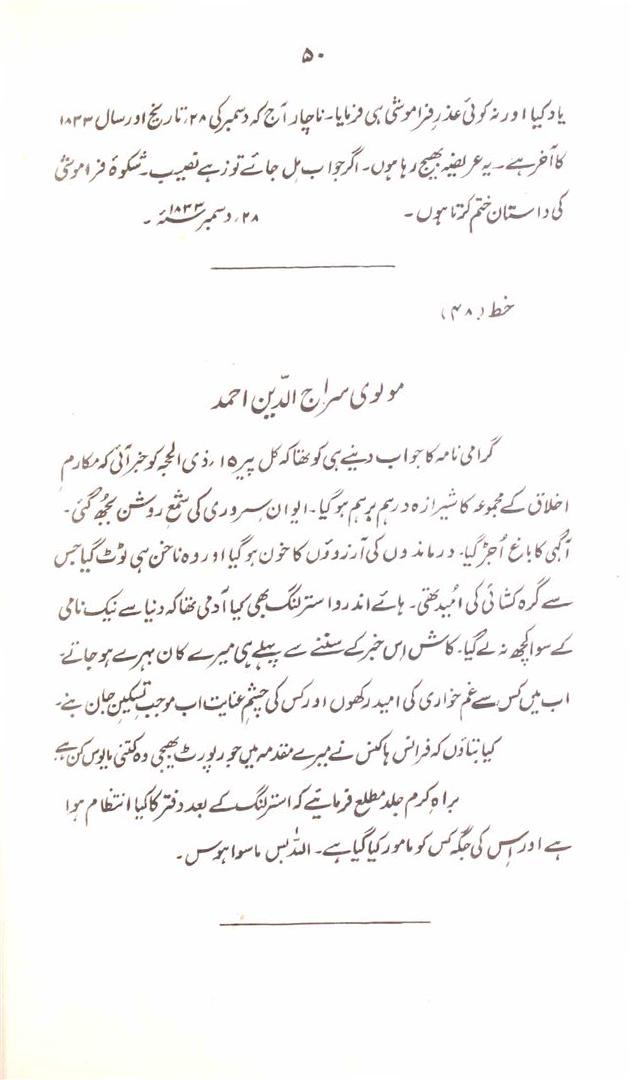 ۵۰
یاد کیا اور نہ کوئی عذرِ فراموشی ہی فرمایا۔ ناچار آج کہ دسمبر کی ۲۸؍ تاریخ اور سال ۱۸۳۳
کا آخر ہے۔ یہ عریضہ بھیج رہا ہوں۔ اگر جواب مل جائے تو زہے نصیب۔ شکوۂ فراموشی
کی داستان ختم کرتا ہوں۔ ۲۸؍ دسمبر ۱۸۳۳ء۔
خط (۴۸)
مولوی سراج الدّین احمد
گرامی نامہ کا جواب دینے ہی کو تھا کہ کل پیر ۱۵؍ ذی الحجہ کو خبر آئی کہ مکارمِ
اخلاق کے مجموعہ کا شیرازہ درہم برہم ہو گیا۔ ایوانِ سروری کی شمعِ روشن بجھ گئی۔
آگہی کا باغ اُجڑ گیا۔ درماندوں کی آرزوؤں کا خون ہو گیا اور وہ ناخن ہی ٹوٹ گیا جس
سے گرہ کشائی کی اُمید تھی۔ ہائے اندرو استرلنگ بھی کیا آدمی تھا کہ دنیا سے نیک نامی
کے سوا کچھ نہ لے گیا۔ کاش اس خبر کے سننے سے پہلے ہی میرے کان بہرے ہو جاتے۔
اب میں کس سے غم خواری کی امید رکھوں اور کس کی چشمِ عنایت اب موجبِ تسکینِ جان بنے۔
کیا بتاؤں کہ فرانس ہاکنس نے میرے مقدمہ میں جو رپورٹ بھیجی وہ کتنی مایوس کن ہے
براہِ کرم جلد مطلع فرمائیے کہ استرلنگ کے بعد دفتر کا کیا انتظام ہوا
ہے اور اس کی جگہ کس کو مامور کیا گیا ہے۔ اللہ بس ماسوا ہوس۔